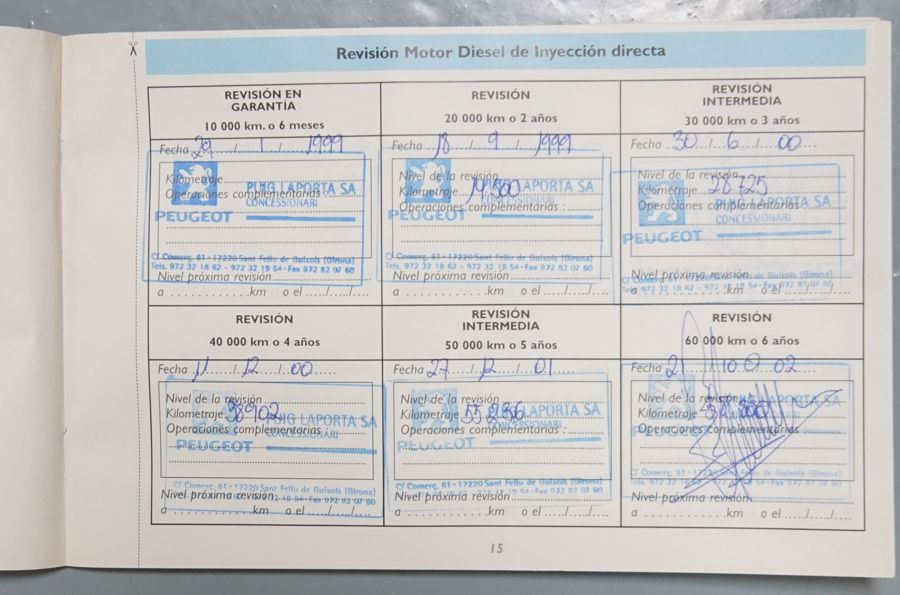 Revisión Motor Diesel de Inyección directa
REVISIÓN EN
GARANTÍA
10 000 km. o 6 meses
Fecha 29 / 1 / 1999
Kilometraje
Operaciones complementarias :
PUIG LAPORTA SA
CONCESSIONARI
PEUGEOT
C/ Comerç, 61 - 17220 Sant Feliu de Guíxols (Girona)
Tels. 972 32 18 62 - 972 32 19 54 - Fax 972 82 07 60
Nivel próxima revisión
a ............km o el ...../...../.....
REVISIÓN
20 000 km o 2 años
Fecha 18 / 9 / 1999
Nivel de la revisión
Kilometraje
Operaciones complementarias :
PUIG LAPORTA SA
CONCESSIONARI
PEUGEOT
C/ Comerç, 61 - 17220 Sant Feliu de Guíxols (Girona)
Tels. 972 32 18 62 - 972 32 19 54 - Fax 972 82 07 60
Nivel próxima revisión
a ............km o el ...../...../.....
REVISIÓN
INTERMEDIA
30 000 km o 3 años
Fecha 30 / 6 / 00
Nivel de la revisión
Kilometraje 28725
Operaciones complementarias :
PUIG LAPORTA SA
CONCESSIONARI
PEUGEOT
C/ Comerç, 61 - 17220 Sant Feliu de Guíxols (Girona)
Tels. 972 32 18 62 - 972 32 19 54 - Fax 972 82 07 60
Nivel próxima revisión
a ............km o el ...../...../.....
REVISIÓN
40 000 km o 4 años
Fecha 11 / 12 / 00
Nivel de la revisión
Kilometraje 38902
Operaciones complementarias :
PUIG LAPORTA SA
CONCESSIONARI
PEUGEOT
C/ Comerç, 61 - 17220 Sant Feliu de Guíxols (Girona)
Nivel próxima revisión
a ............km o el ...../...../.....
REVISIÓN
INTERMEDIA
50 000 km o 5 años
Fecha 27 / 12 / 01
Nivel de la revisión
Kilometraje 55236
Operaciones complementarias :
LAPORTA SA
CONCESSIONARI
PEUGEOT
C/ Comerç, 61 - 17220 Sant Feliu de Guíxols (Girona)
Nivel próxima revisión
a ............km o el ...../...../.....
REVISIÓN
60 000 km o 6 años
Fecha 21 / 10 / 02
Nivel de la revisión
Kilometraje
Operaciones complementarias :
LAPORTA SA
CONCESSIONARI
PEUGEOT
Nivel próxima revisión
a ............km o el ...../...../.....
15